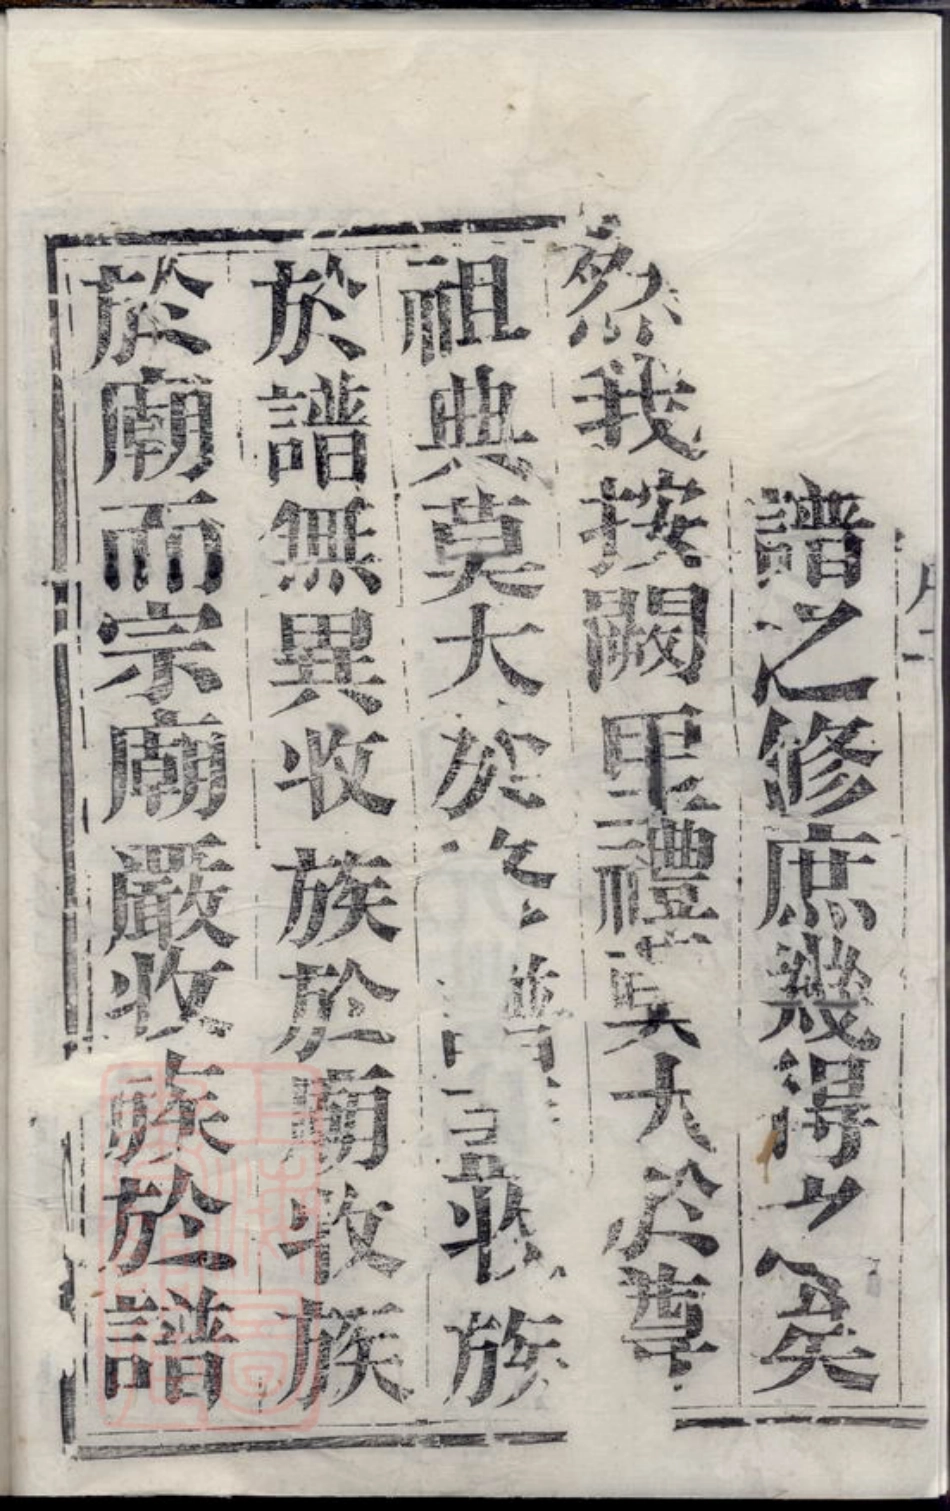 譜之修庶幾得矣
然我按闕里禮莫大於尊
祖典莫大於收族
於譜無異收族於廟收族
於廟而宗廟嚴收族於譜